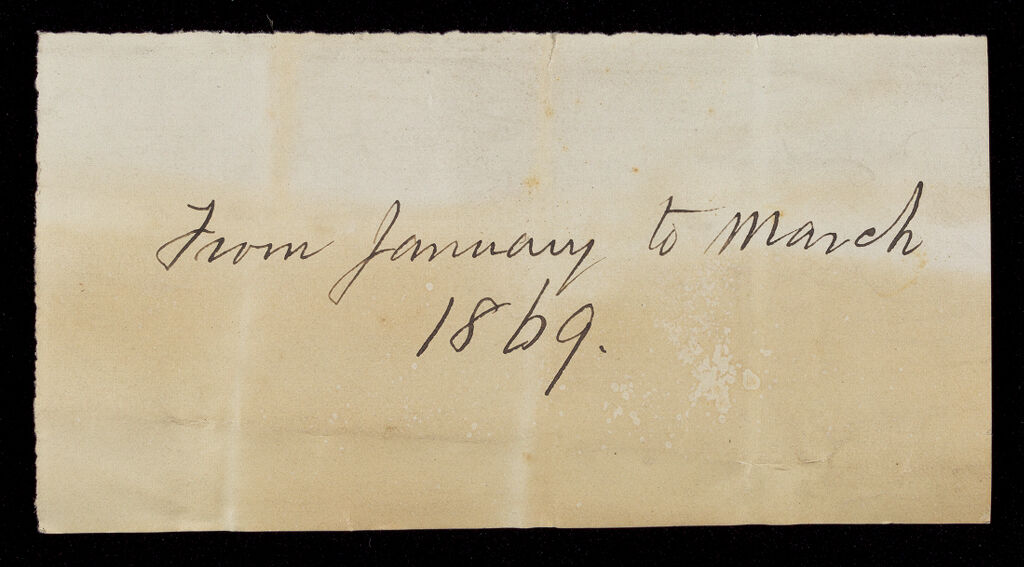 From January to March
1869.